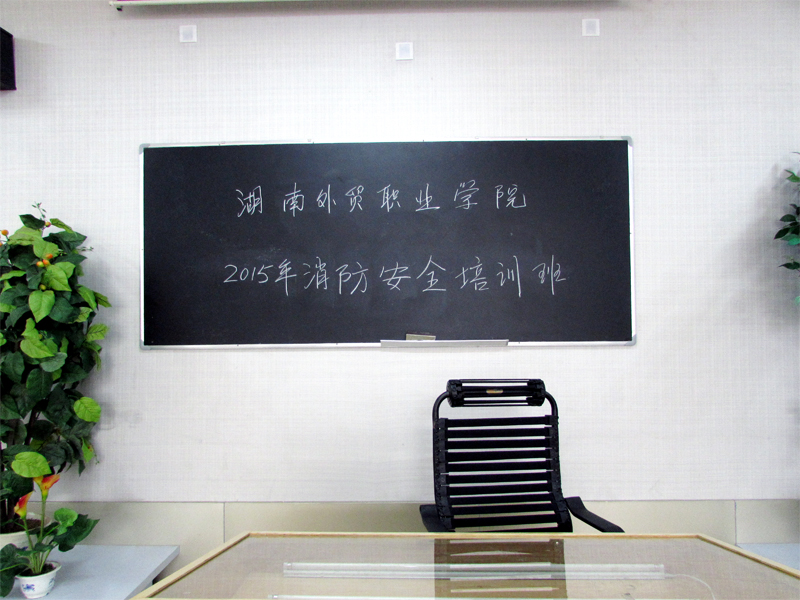 湖南外贸职业学院
2015年消防安全培训班